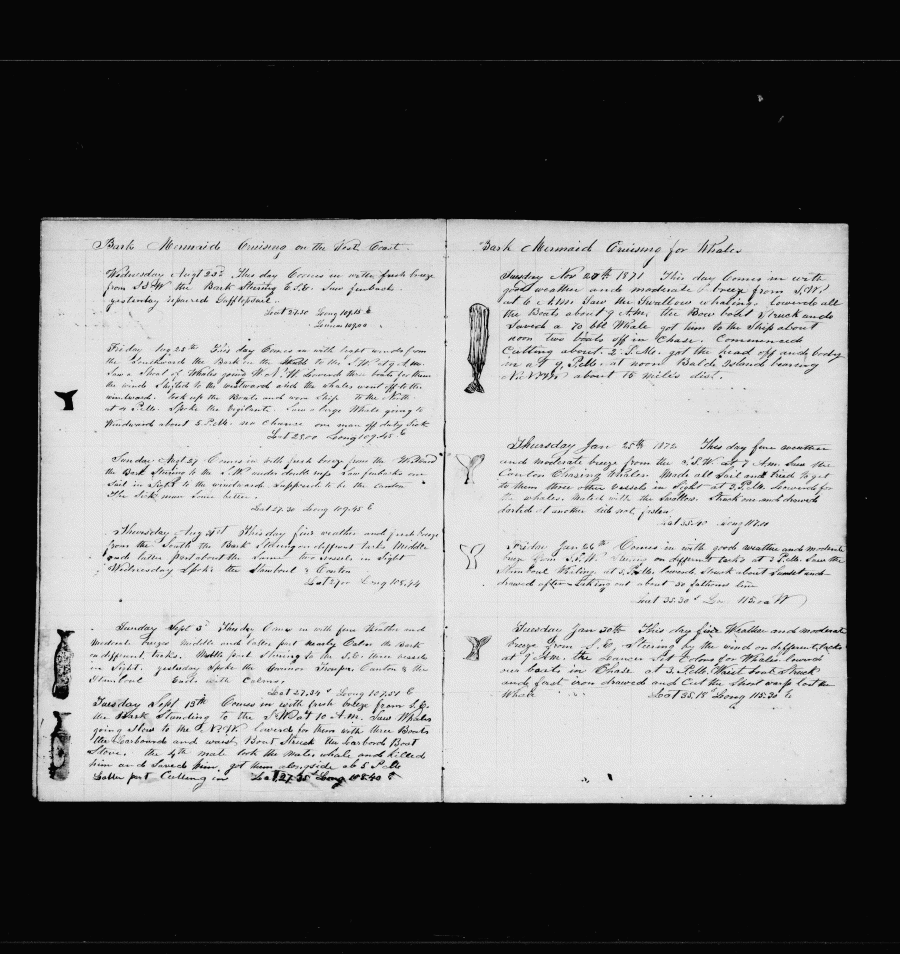 Bark Mermaid Cruising on the West Coast
Wednesday Augt 23d This day Comes in with fresh breeze
from S S W the Bark Steering E S E. Saw finback
yesterday repaired Gafftopsail
Lat 27.50 Long 109.15 E
Lunar 109.00
Friday Aug 25th This day Comes in with light winds from
the Southward the Bark on the to the S.W. at 9 A.m.
Saw a Shoal of Whales going W.N.W Lowered three boats for them
the winds Shifted to the westward and the whales went off to the
windward. took up the Boats and wore Ship to the North
at 4 P.M. Spoke the Vigilant. Saw a large Whale going to
Windward about 5 P.M. no Chance one man off duty Sick
Lat 28.00 Long 109.45 E
Sunday Augt 27 Comes in with fresh breeze from the Westward
the Bark Steering to the S.W under double reefs Saw finbacks one
Sail in Sight to the windward Supposed to be the Canton
The Sick man Some better
Lat 27.30 Long 109.45 E
Thursday Aug 31st This day fine weather and fresh breeze
from the South the Bark Steering on different tacks Middle
and latter part about the Same two vessels in Sight
Wednesday Spoke the & Canton
Long 108.44
Sunday Sept 3d This day Coms in with fine Weather and
moderate breezes middle and latter part nearly Calm the Bark
on different tacks. Middle part Steering to the S.E. three vessels
in Sight. yesterday Spoke the Governor Troup, Canton & the
Ends with Calms
Lat 27.34 S Long 107.51 E
Tuesday Sept 13th Comes in with fresh breeze from S.E.
the Bark Standing to the S.W at 10 A.M. Saw Whales
going Slow to the N.W. lowered for them with three Boats
the Larboard and waist Boat Struck the Larbord Boat
Stove. the 4th mate took the mates whale and killed
him and Saved him. got them alongside at 5 P.M.
Latter part Cutting in Lat 27.35 S Long 108.40 E
Bark Mermaid Cruising for Whales
Tuesday Nov 28th 1871 This day Comes in with
good weather and moderate breeze from S.W.
at 6 A.M. Saw the Swallow whaling. lowered all
the Boats about 9 A.M. the Bow boat Struck and
Saved a 70 bbl Whale got him to the Ship about
noon two boats off in Chase. Commenced
Cutting about 2 P.M. got the head off and body
in at 9 P.M. at noon Bald Island bearing
about 15 miles dist.
Thursday Jan 25th 1872 This day fine weather
and moderate breeze from the S.S.W. at 7 A.M. Saw the
Canton Chasing Whales. Made all Sail and tried to get
to them three other vessels in Sight at 3 P.M. lowered for
the whales. Mated with the Swallow. Struck one and drawed
darted at another did not fasten
Lat 35.40 Long 117.00
Friday Jan 26th Comes in with good weather and moderate
breeze from S.S.W. Steering on different tacks at 2 P.M. Saw the
Whaling. at 3 P.M. lowered. Struck about Sunset and
drawed after taking out about 30 fathoms line
Lat 35.30 S Lon 115.00 W
Tuesday Jan 30th This day fine Weather and moderate
breeze from S.E. Steering by the wind on different tacks
at 9 A.M. the Lancer Set Colors for Whales. lowered
our boats in Chase at 3 P.M. Waist boat Struck
and first iron drawed and Cut the Short warp lost the
Whale Lat 35.18 S Long 115.30 E